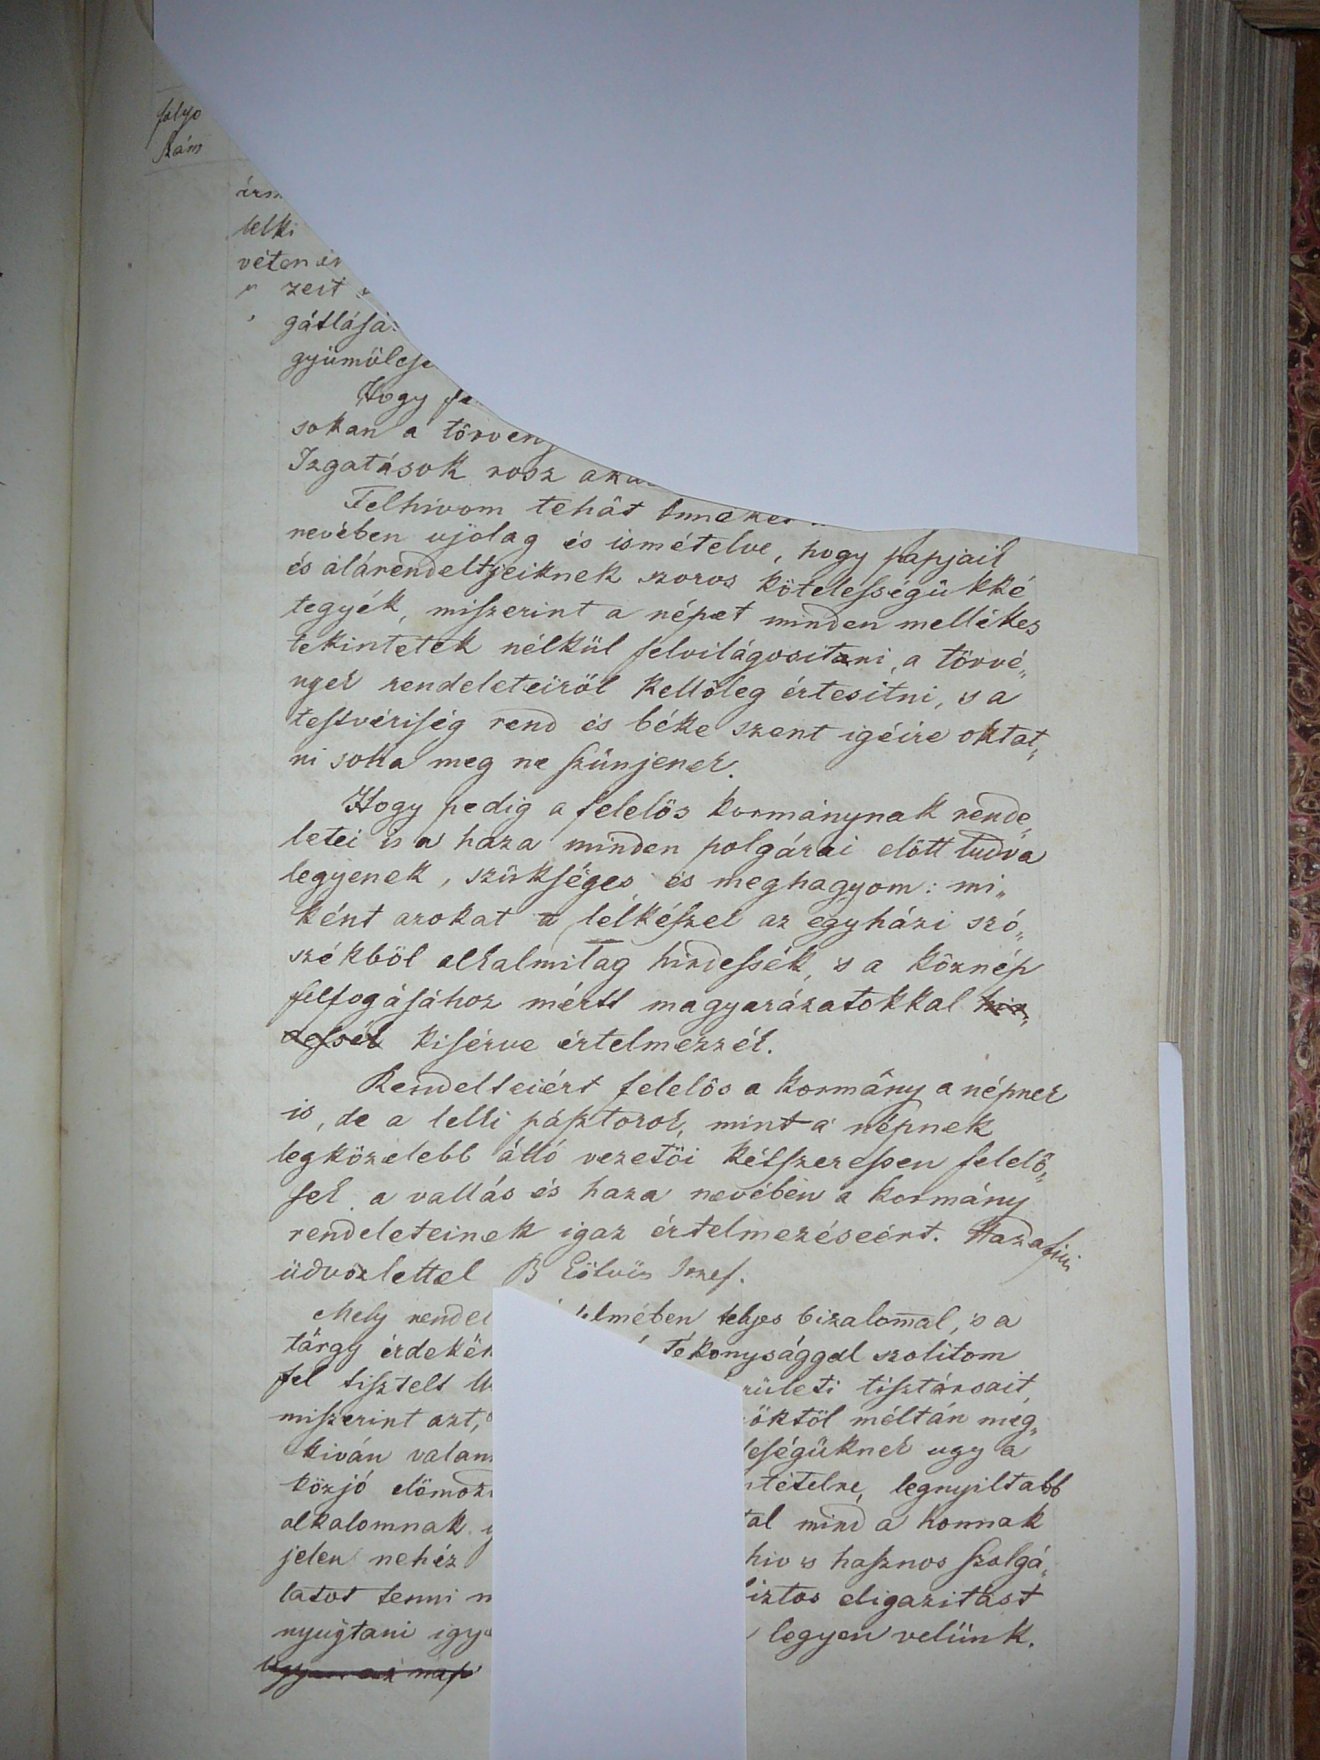 folyo
szám
érm
lelki
véten ér
zeit
gátlásá
gyümölcse
Hogy
sokan a törvény
Izgatások rosz aka
Felhívom tehát
nevében ujolag és ismételve, hogy papjaik
és alárendeltjeiknek szoros kötelességükké
tegyék, miszerint a népet minden mellékes
tekintetek nélkül felvilágositani, a törvé„
nyek rendeleteiröl kellöleg értesitni, s a
testvériség rend és béke szent igéire oktat„
ni soha meg ne szünjenek.
Hogy pedig a felelös kormánynak rende„
letei is a haza minden polgárai elött tudva
legyenek, szükséges és meghagyom: mi„
ként azokat a lelkészek az egyházi szó„
székböl alkalmilag hirdessék, s a köznép
felfogásához mértt magyarázatokkal hir„
dessék kisérve értelmezzék.
Rendelteiért felelös a kormány a népnek
is, de a lelki pásztorok, mint a népnek
legközelebb álló vezetöi kétszeressen felelö„
sek a vallás és haza nevében a kormány
rendeleteinek igaz értelmezéseért. Hazafiui
üdvözlettel B Eötvös Jozef.
Mely rendel elmében teljes bizalommal, s a
tárgy érdekén tékonysággal szolitom
fel tisztelt rületi tisztársait,
miszerint azt, öktöl méltán meg„
kiván valam eségüknek ugy a
közjó elömozd ntételre, legnyiltabb
alkalomnak tal mind a honnak
jelen nehéz hiv s hasznos szolgá„
latot tenni n iztos eligazitást
nyujtani igye legyen velünk.
Ugyan az nap